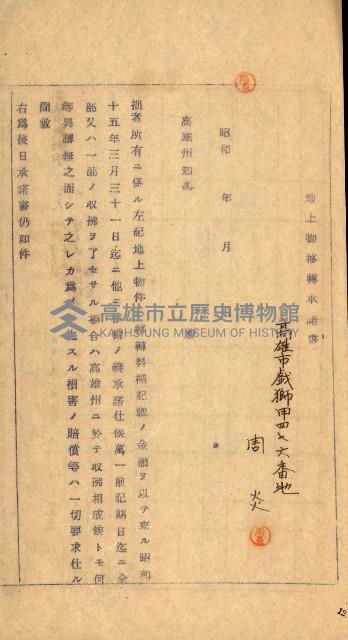 地上物移轉承諾書
高雄市戲獅甲四七六番地
周 炎
昭和 年 月
高雄州知事
拙者所有ニ係ル左記地上物件ハ移轉料欄記載ノ金額ヲ以テ來ル昭和
十五年三月三十一日迄ニ他ニ移轉ノ義承諾仕候萬一前記期日迄ニ全
部又ハ一部ノ收拂ヲ了セサル場合ハ高雄州ニ於テ收拂相成候トモ何
等異議無之而シテ之レカ爲メ生スル損害ノ賠償等ハ一切要求仕ル
間敷
右爲後日承諾書仍如件
高雄市立歷史博物館
KAOHSIUNG MUSEUM OF HISTORY
12